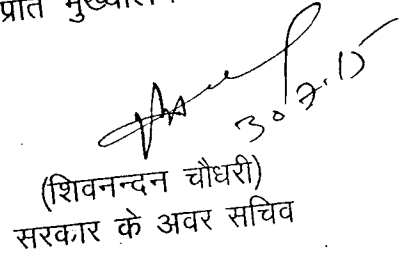 प्रति
30.7.15
(शिवनन्दन चौधरी)
सरकार के अवर सचिव